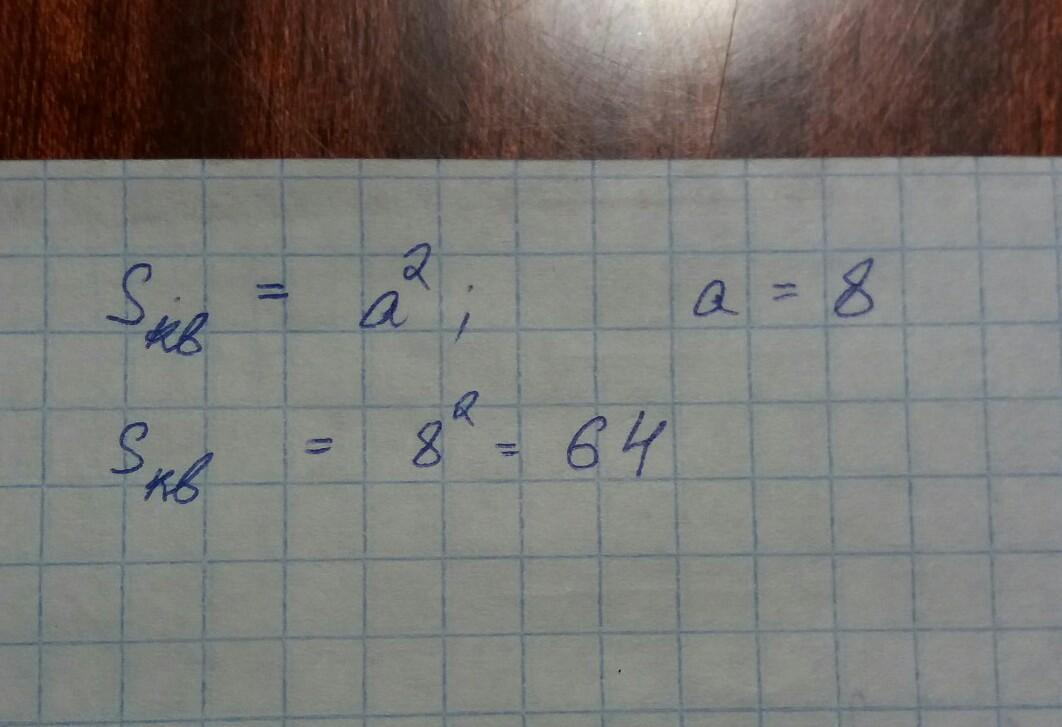 Sкв = a²; a = 8
Sкв = 8² = 64